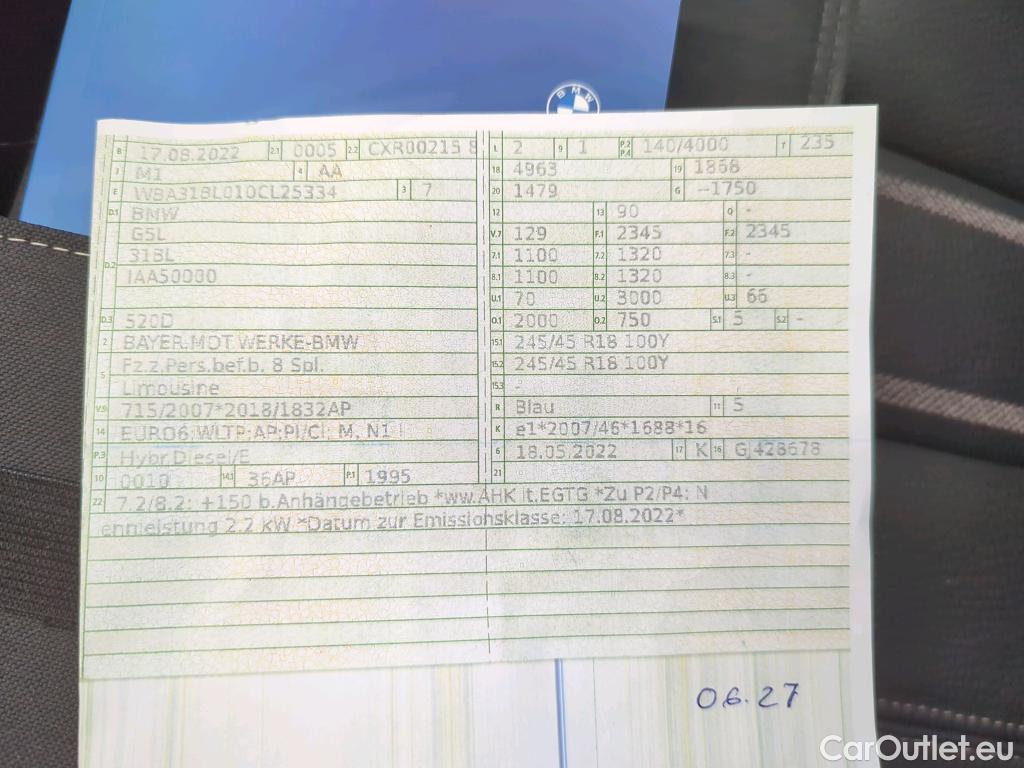 BMW
B 17.08.2022 2.1 0005 2.2 CXR00215 8 L 2 9 1 P.2 P.4 140/4000 T 235
J M1 4 AA 18 4963 19 1868
E WBA31BL010CL25334 3 7 20 1479 G -1750
D.1 BMW 12 13 90 Q -
D.2 G5L V.7 129 F.1 2345 F.2 2345
31BL 7.1 1100 7.2 1320 7.3 -
IAA50000 8.1 1100 8.2 1320 8.3 -
U.1 70 U.2 3000 U.3 66
D.3 520D O.1 2000 O.2 750 S.1 5 S.2 -
2 BAYER.MOT.WERKE-BMW 15.1 245/45 R18 100Y
5 Fz.z.Pers.bef.b. 8 Spl. 15.2 245/45 R18 100Y
Limousine 15.3 -
V.9 715/2007*2018/1832AP R Blau 11 5
14 EURO6;WLTP;AP;PI/CI; M, N1 I K e1*2007/46*1688*16
P.3 Hybr.Diesel/E 6 18.05.2022 17 K 16 GJ428678
10 0010 14.1 36AP P.1 1995 21
22 7.2/8.2: +150 b.Anhängebetrieb *ww.AHK lt.EGTG *Zu P2/P4: N
ennleistung 2.2 kW *Datum zur Emissionsklasse: 17.08.2022*
06.27
CarOutlet.eu